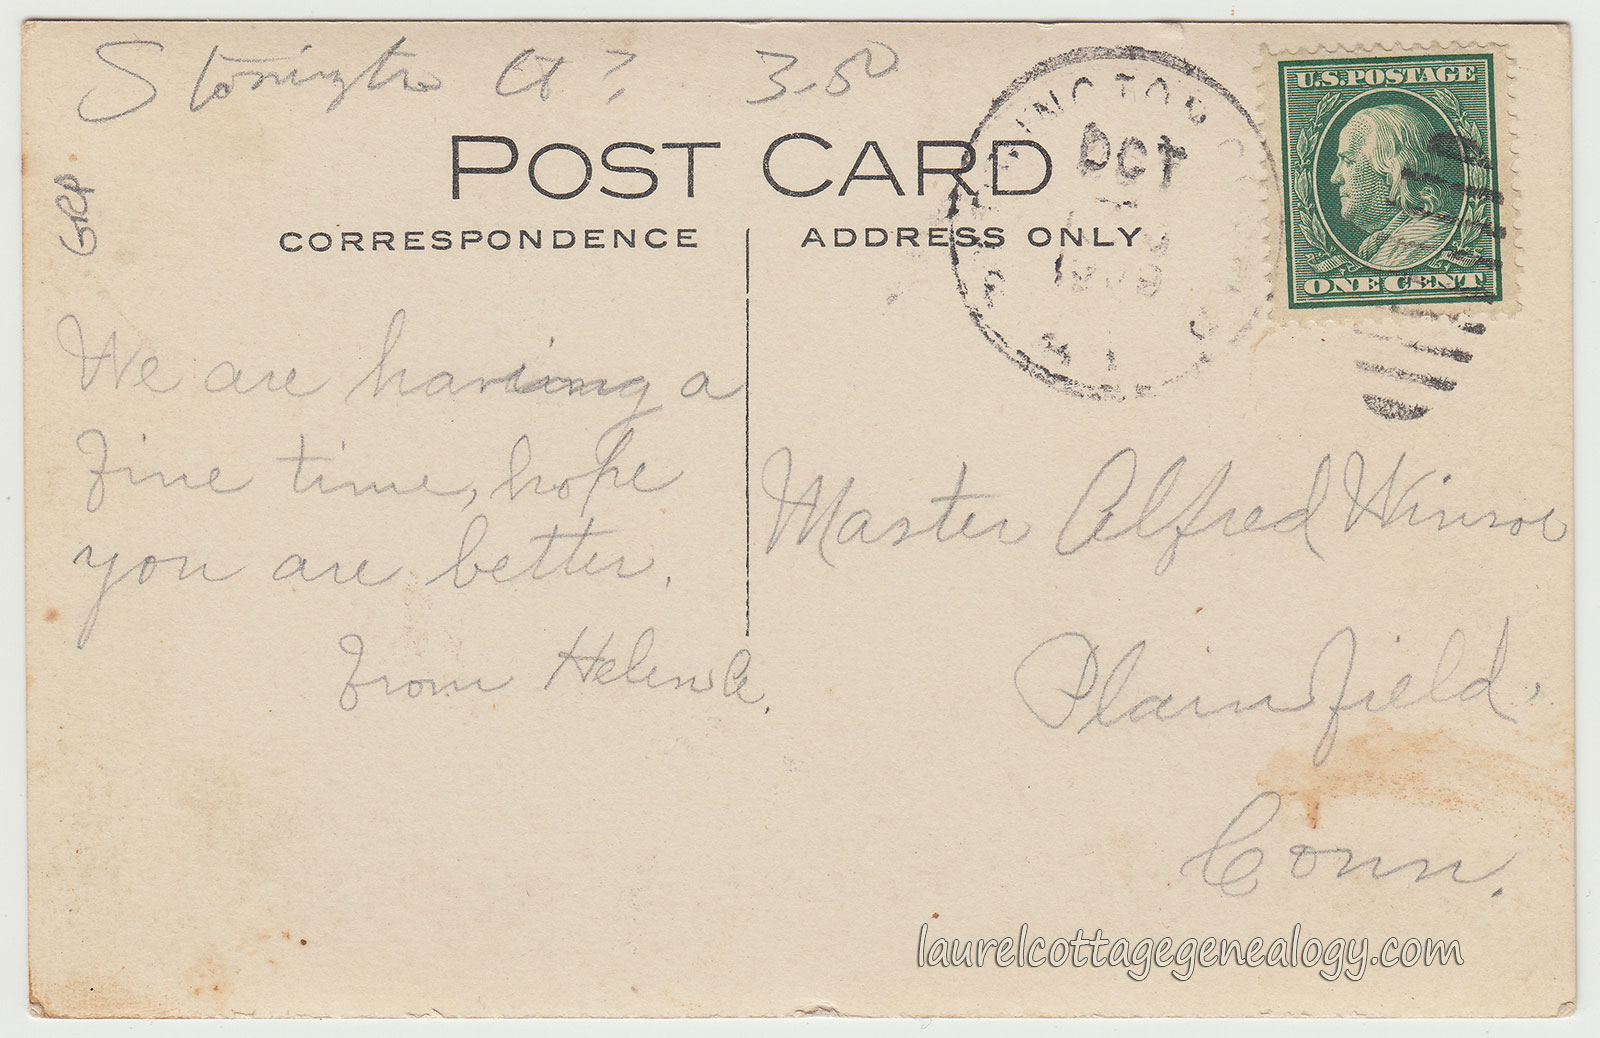 Stonington Ct? 3.50
GRP
POST CARD
CORRESPONDENCE
ADDRESS ONLY
OCT
1909
R.I.
U.S. POSTAGE
ONE CENT
We are having a
fine time, hope
you are better.
From Helen C.
Master Alfred Winsor
Plainfield,
Conn.
laurelcottagegenealogy.com